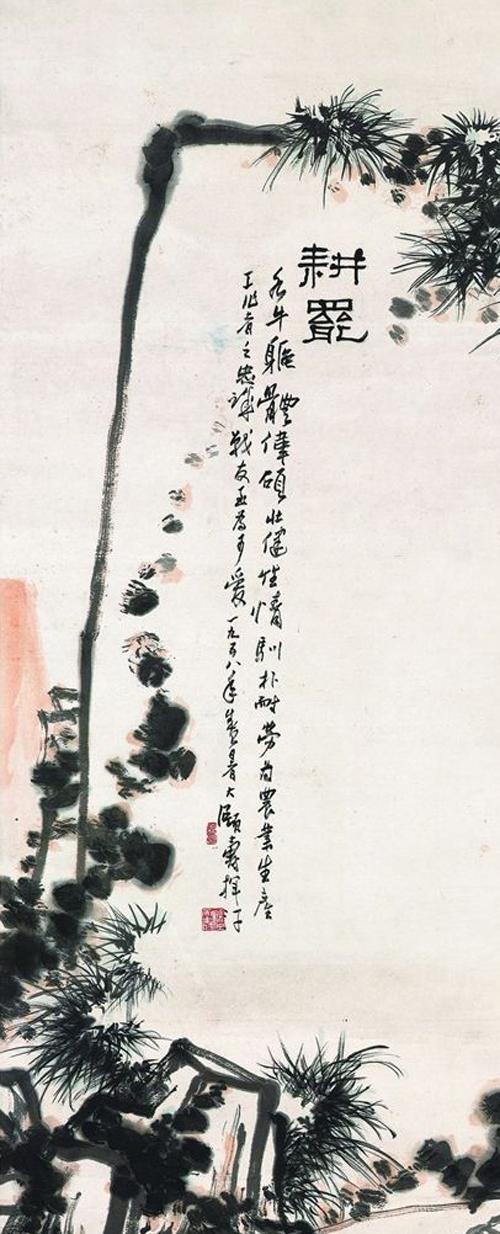 耕罷
水牛軀體偉碩壯健性情馴朴耐勞為農業生產
工作者之忠誠戰友至為可愛一九五八年炎暑大頤壽揮汗